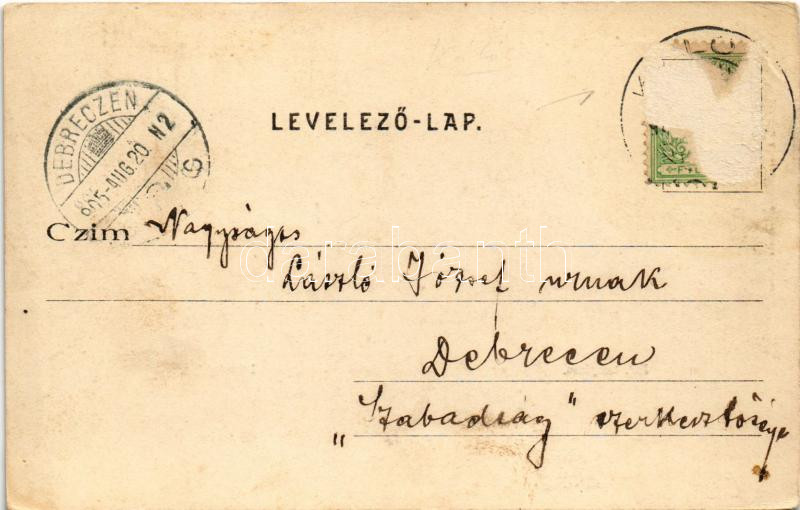 LEVELEZŐ-LAP.
DEBRECZEN
905-AUG.20. N2
Czim Nagyságos
László József urnak
Debrecen
„Szabadság" szerkesztősége
darabanth